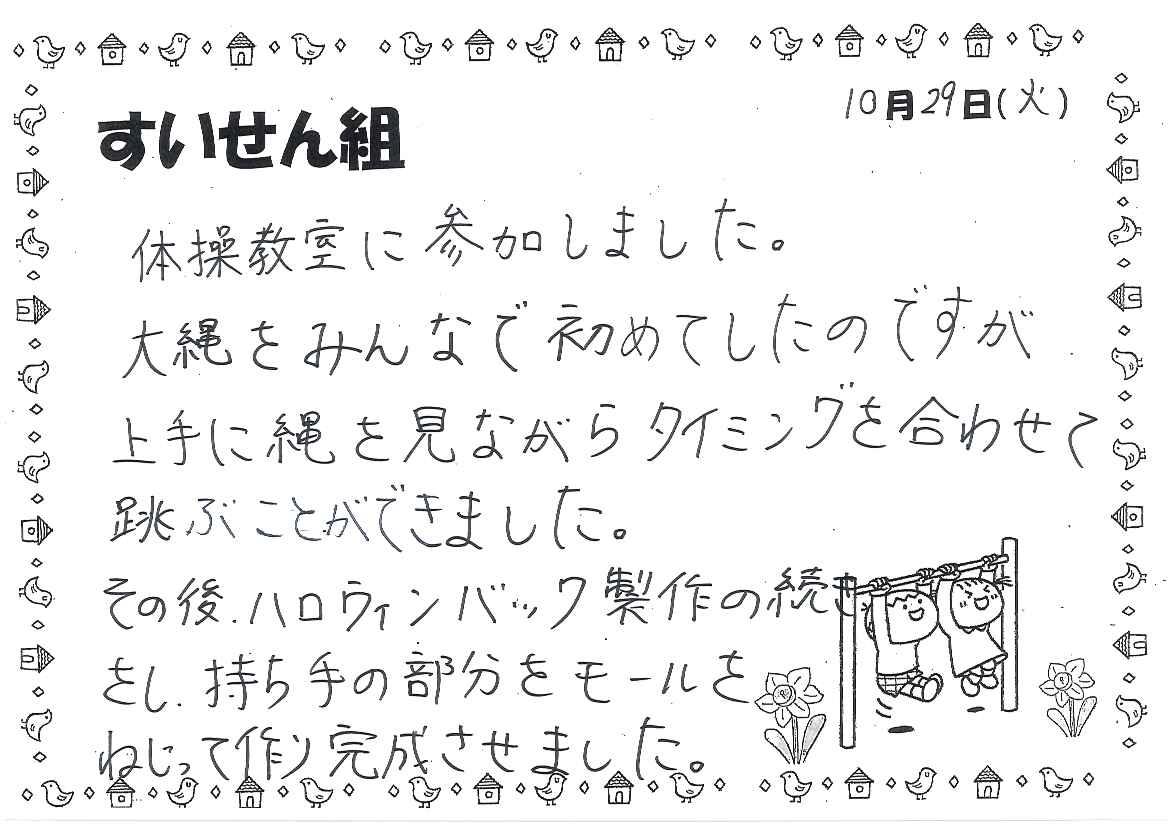 10月29日(火)
すいせん組
体操教室に参加しました。
大縄をみんなで初めてしたのですが
上手に縄を見ながらタイミングを合わせて
跳ぶことができました。
その後、ハロウィンバック製作の続き
をし、持ち手の部分をモールを
ねじって作り完成させました。